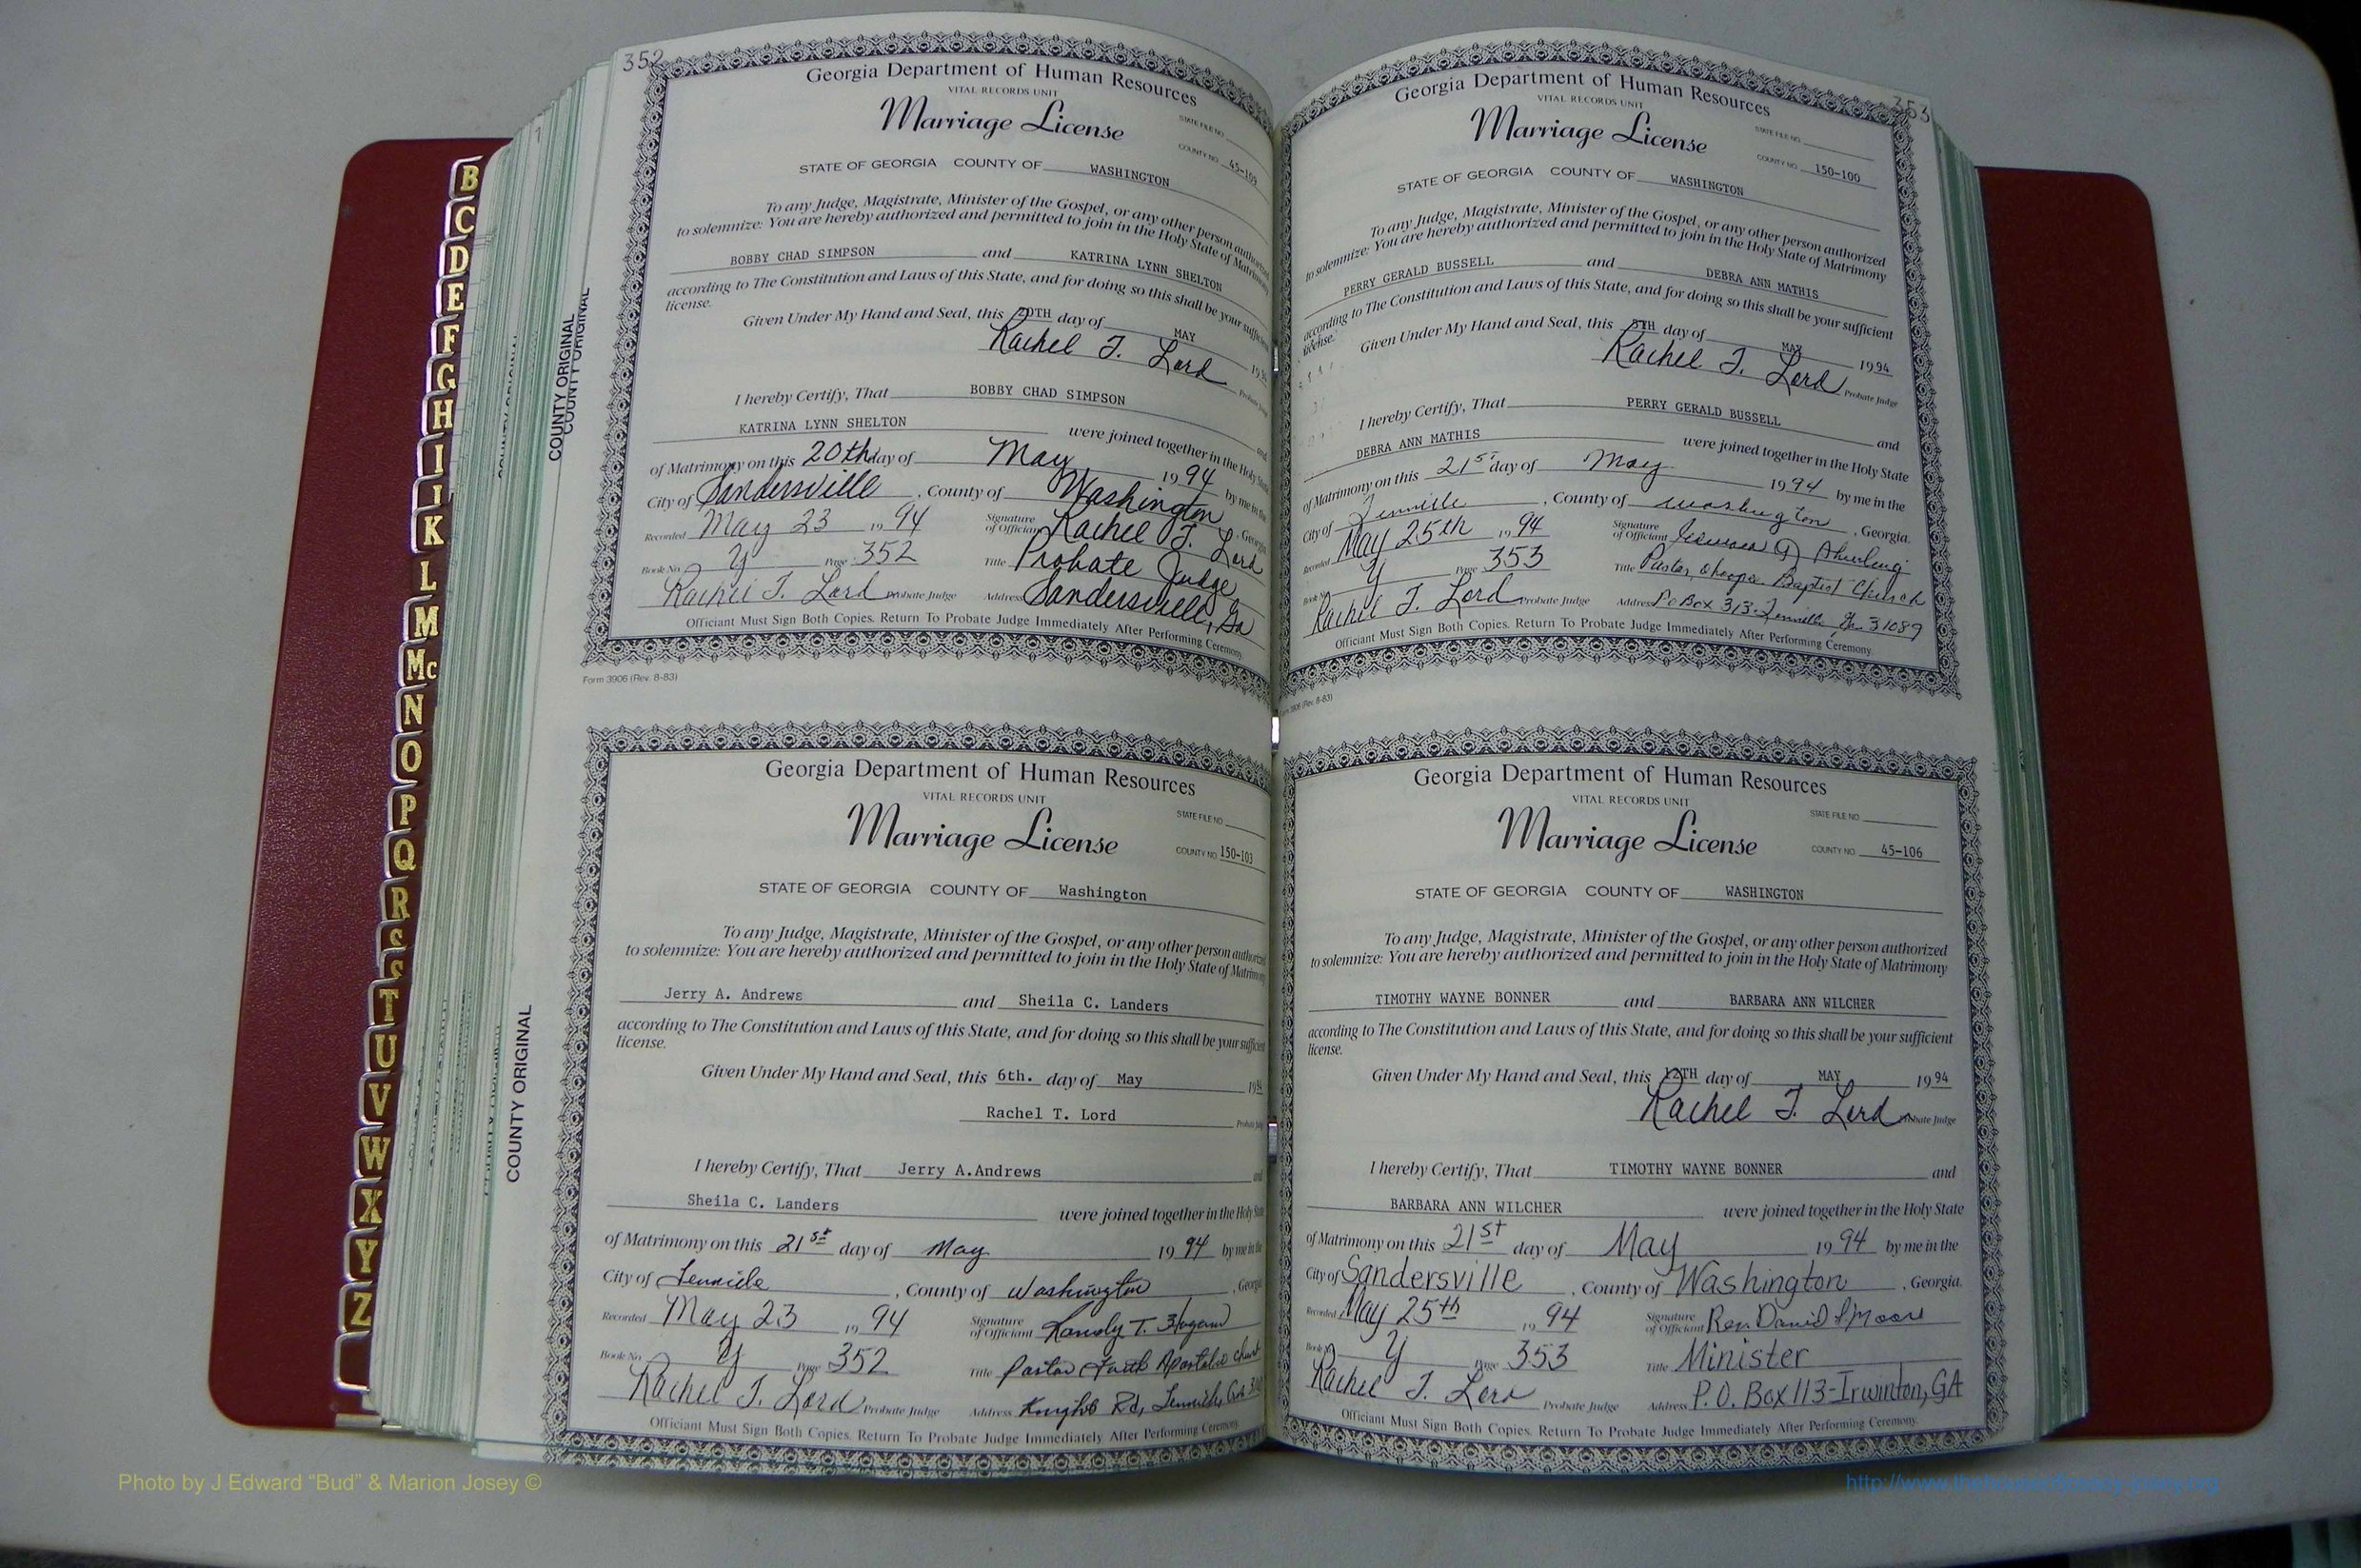 352
Georgia Department of Human Resources
VITAL RECORDS UNIT
Marriage License
STATE FILE NO.
COUNTY NO. 45-109
STATE OF GEORGIA COUNTY OF WASHINGTON
To any Judge, Magistrate, Minister of the Gospel, or any other person authorized
to solemnize: You are hereby authorized and permitted to join in the Holy State of Matrimony
BOBBY CHAD SIMPSON and KATRINA LYNN SHELTON
according to The Constitution and Laws of this State, and for doing so this shall be your sufficient
license.
Given Under My Hand and Seal, this 20TH day of MAY 19
Rachel T. Lord
Probate Judge
I hereby Certify, That BOBBY CHAD SIMPSON and
KATRINA LYNN SHELTON were joined together in the Holy State
of Matrimony on this 20th day of May 1994 by me in the
City of Sandersville, County of Washington, Georgia.
Recorded May 23 1994 Signature of Officiant Rachel T. Lord
Book No. Y Page 352 Title Probate Judge
Rachel T. Lord Probate Judge Address Sandersville, Ga
Officiant Must Sign Both Copies. Return To Probate Judge Immediately After Performing Ceremony.
Form 3906 (Rev. 8-83)
COUNTY ORIGINAL
COUNTY ORIGINAL
Georgia Department of Human Resources
VITAL RECORDS UNIT
Marriage License
STATE FILE NO.
COUNTY NO. 150-103
STATE OF GEORGIA COUNTY OF Washington
To any Judge, Magistrate, Minister of the Gospel, or any other person authorized
to solemnize: You are hereby authorized and permitted to join in the Holy State of Matrimony
Jerry A. Andrews and Sheila C. Landers
according to The Constitution and Laws of this State, and for doing so this shall be your sufficient
license.
Given Under My Hand and Seal, this 6th. day of May 19
Rachel T. Lord
Probate Judge
I hereby Certify, That Jerry A.Andrews and
Sheila C. Landers were joined together in the Holy State
of Matrimony on this 21st day of May 1994 by me in the
City of Tennille, County of Washington, Georgia
Recorded May 23 1994 Signature of Officiant Randy T.
Book No. Y Page 352 Title Pastor Faith Apostolic Church
Rachel T. Lord Probate Judge Address Knight Rd, Tennille, Ga
Officiant Must Sign Both Copies. Return To Probate Judge Immediately After Performing Ceremony.
COUNTY ORIGINAL
353
Georgia Department of Human Resources
VITAL RECORDS UNIT
Marriage License
STATE FILE NO.
COUNTY NO. 150-100
STATE OF GEORGIA COUNTY OF WASHINGTON
To any Judge, Magistrate, Minister of the Gospel, or any other person authorized
to solemnize: You are hereby authorized and permitted to join in the Holy State of Matrimony
PERRY GERALD BUSSELL and DEBRA ANN MATHIS
according to The Constitution and Laws of this State, and for doing so this shall be your sufficient
license.
Given Under My Hand and Seal, this 5TH day of MAY 1994
Rachel T. Lord Probate Judge
I hereby Certify, That PERRY GERALD BUSSELL and
DEBRA ANN MATHIS were joined together in the Holy State
of Matrimony on this 21st day of May 1994 by me in the
City of Tennille, County of Washington, Georgia.
Recorded May 25th 1994 Signature of Officiant
Book No. Y Page 353 Title Pastor, Ohoopee Baptist Church
Rachel T. Lord Probate Judge Address P O Box 313-Tennille, Ga. 31089
Officiant Must Sign Both Copies. Return To Probate Judge Immediately After Performing Ceremony.
Form 3906 (Rev. 8-83)
Georgia Department of Human Resources
VITAL RECORDS UNIT
Marriage License
STATE FILE NO.
COUNTY NO. 45-106
STATE OF GEORGIA COUNTY OF WASHINGTON
To any Judge, Magistrate, Minister of the Gospel, or any other person authorized
to solemnize: You are hereby authorized and permitted to join in the Holy State of Matrimony
TIMOTHY WAYNE BONNER and BARBARA ANN WILCHER
according to The Constitution and Laws of this State, and for doing so this shall be your sufficient
license.
Given Under My Hand and Seal, this 12TH day of MAY 1994
Rachel T. Lord Probate Judge
I hereby Certify, That TIMOTHY WAYNE BONNER and
BARBARA ANN WILCHER were joined together in the Holy State
of Matrimony on this 21st day of May 1994 by me in the
City of Sandersville, County of Washington, Georgia.
Recorded May 25th 1994 Signature of Officiant Rev. David Moore
Book No. Y Page 353 Title Minister
Rachel T. Lord Probate Judge Address P.O. Box 113-Irwinton, GA
Officiant Must Sign Both Copies. Return To Probate Judge Immediately After Performing Ceremony.
B
C
D
E
F
G
H
I
K
L
M
Mc
N
O
P
Q
R
S
T
U
V
W
X
Y
Z
Photo by J Edward “Bud” & Marion Josey ©